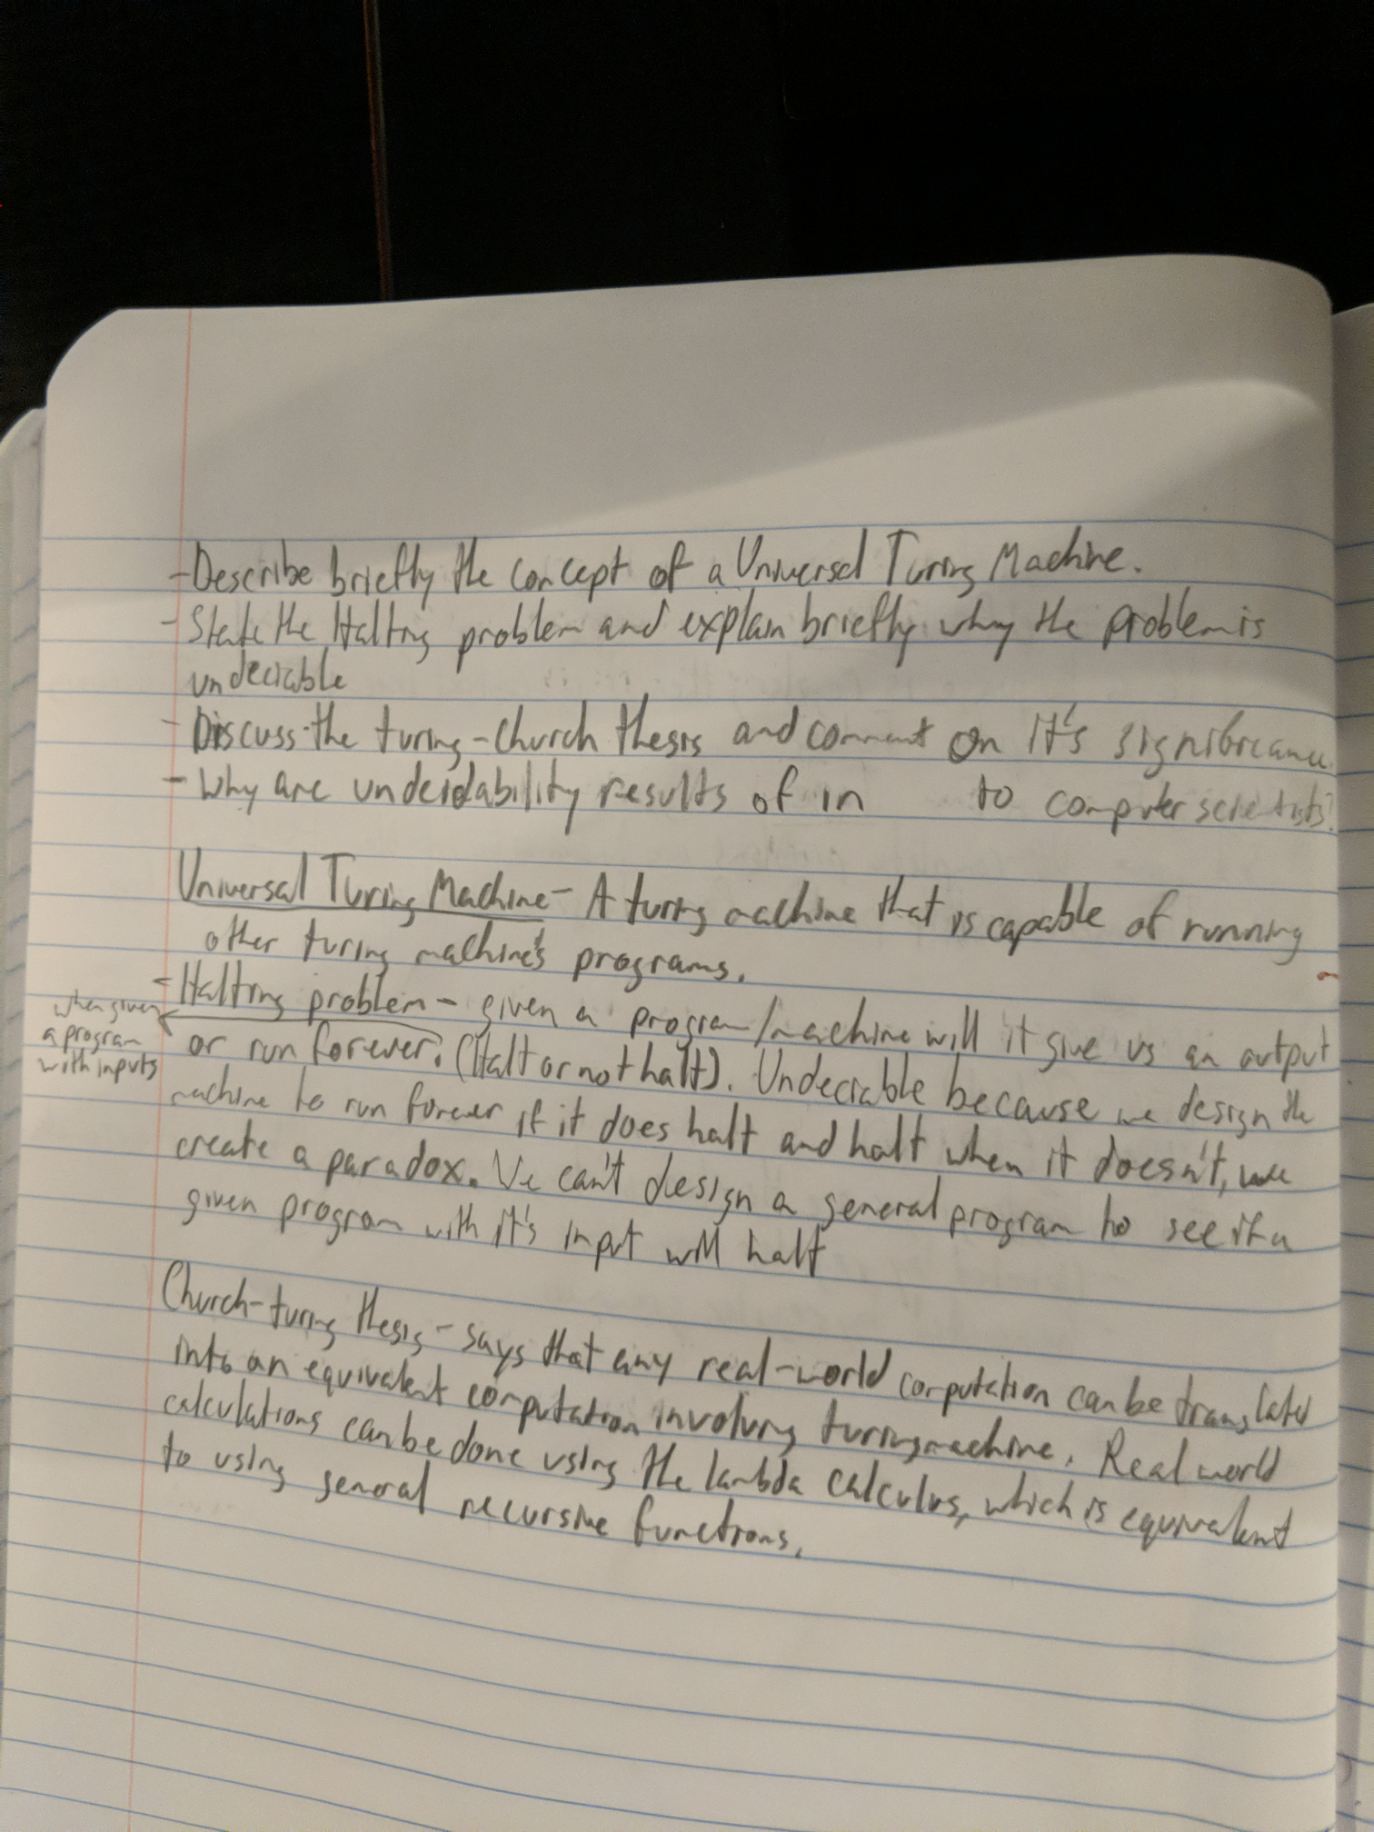 -Describe briefly the concept of a Universal Turing Machine.
- State the Halting problem and explain briefly why the problem is
undeciable
- Discuss the turing-church thesis and comment on it's significance
- Why are undecidability results of in to computer scientists?
Universal Turing Machine - A turing machine that is capable of running
other turing machine's programs.
- Halting problem - given a program/machine will it give us an output
when given
a program
with inputs
or run forever. (Halt or not halt). Undeciable because we design the
machine to run forever if it does halt and halt when it doesn't, we
create a paradox. We can't design a general program to see if a
given program with it's input will halt
Church-turing thesis - says that any real-world computation can be translated
into an equivalent computation involving turing machine. Real world
calculations can be done using the lambda calculus, which is equivalent
to using general recursive functions.